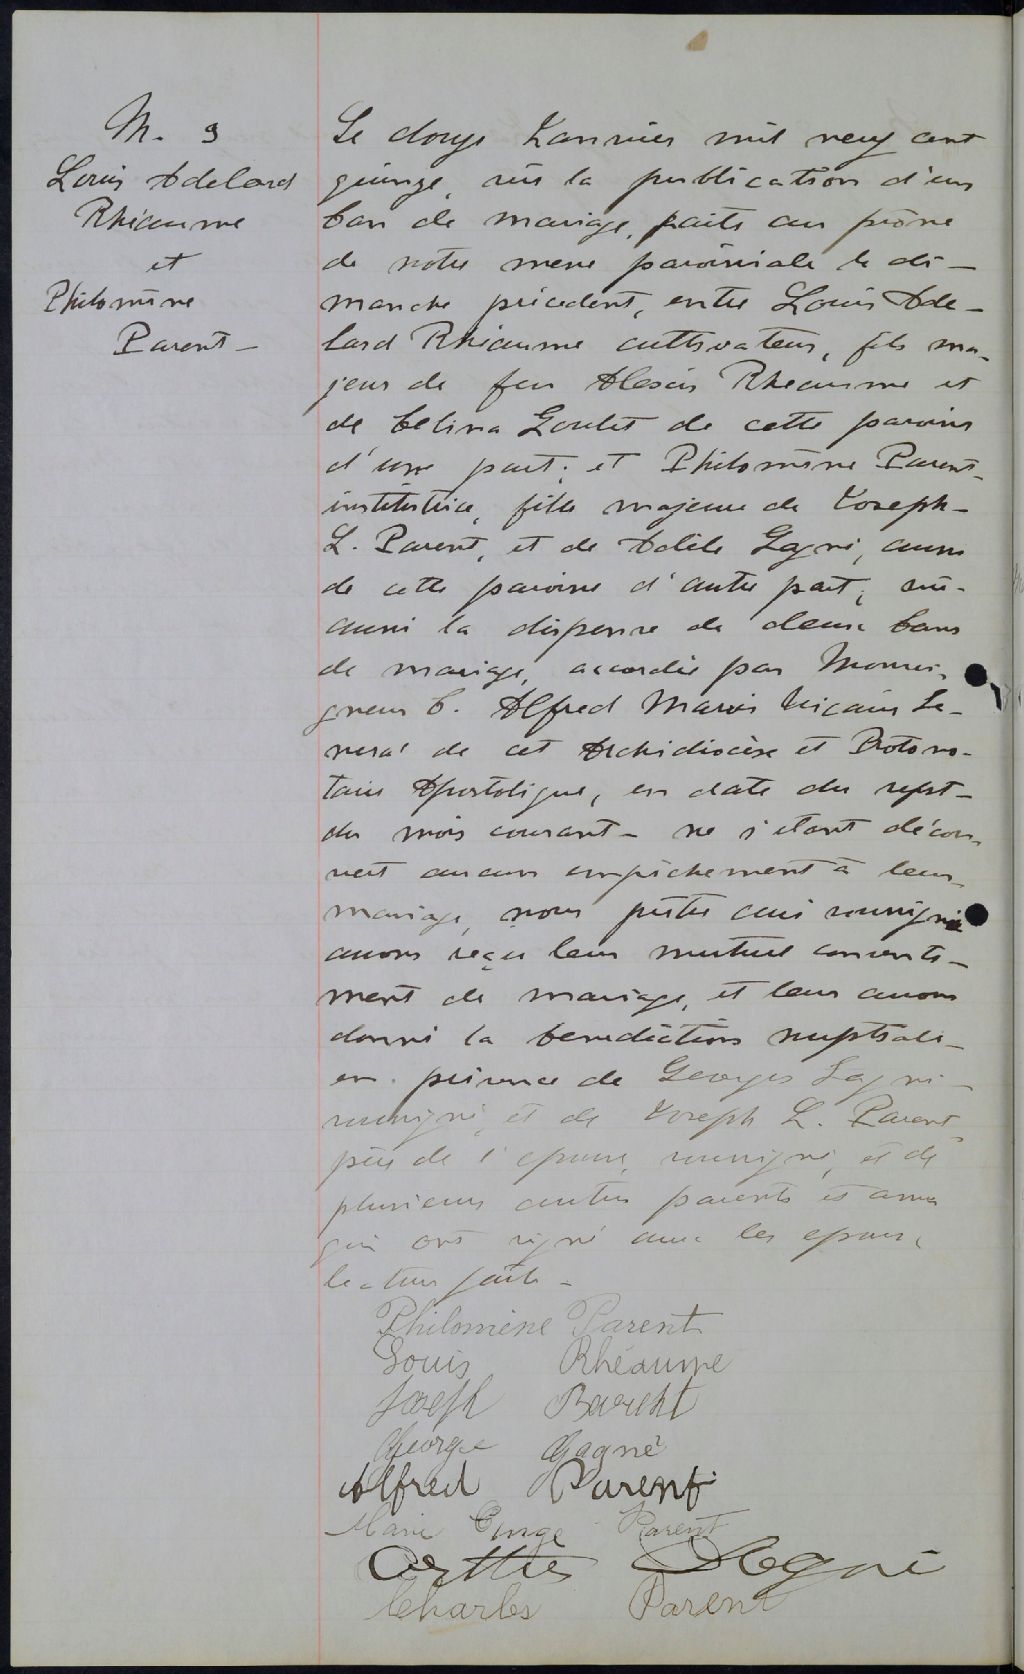 M. 3
Louis Adelard
Rhéaume
et
Philomène
Parent -
Le douze Janvier mil neuf cent
quinze, vu la publication d'un
ban de mariage, faite au prône
de notre messe paroissiale le di-
manche précédent, entre Louis Ade-
lard Rhéaume cultivateur, fils ma-
jeur de feu Alexis Rhéaume et
de Celina Goulet de cette paroisse
d'une part; et Philomène Parent
institutrice, fille majeure de Joseph
L. Parent, et de Adèle Gagné, aussi
de cette paroisse d'autre part; vu
aussi la dispense de deux bans
de mariage, accordée par Monsei-
gneur C. Alfred Marois Vicaire Gé-
néral de cet Archidiocèse et Protono-
taire Apostolique, en date du sept
du mois courant - ne s'étant décou-
vert aucun empêchement à leur
mariage, nous prêtre curé soussigné
avons reçu leur mutuel consente-
ment de mariage, et leur avons
donné la bénédiction nuptiale
en présence de Georges Gagné
soussigné, et de Joseph L. Parent
père de l'épouse, soussigné, et de
plusieurs autres parents et amis
qui ont signé avec les époux,
lecture faite -
Philomène Parent
Louis Rhéaume
Joseph Parent
George Gagné
Alfred Parent
Marie Parent
Charles Parent